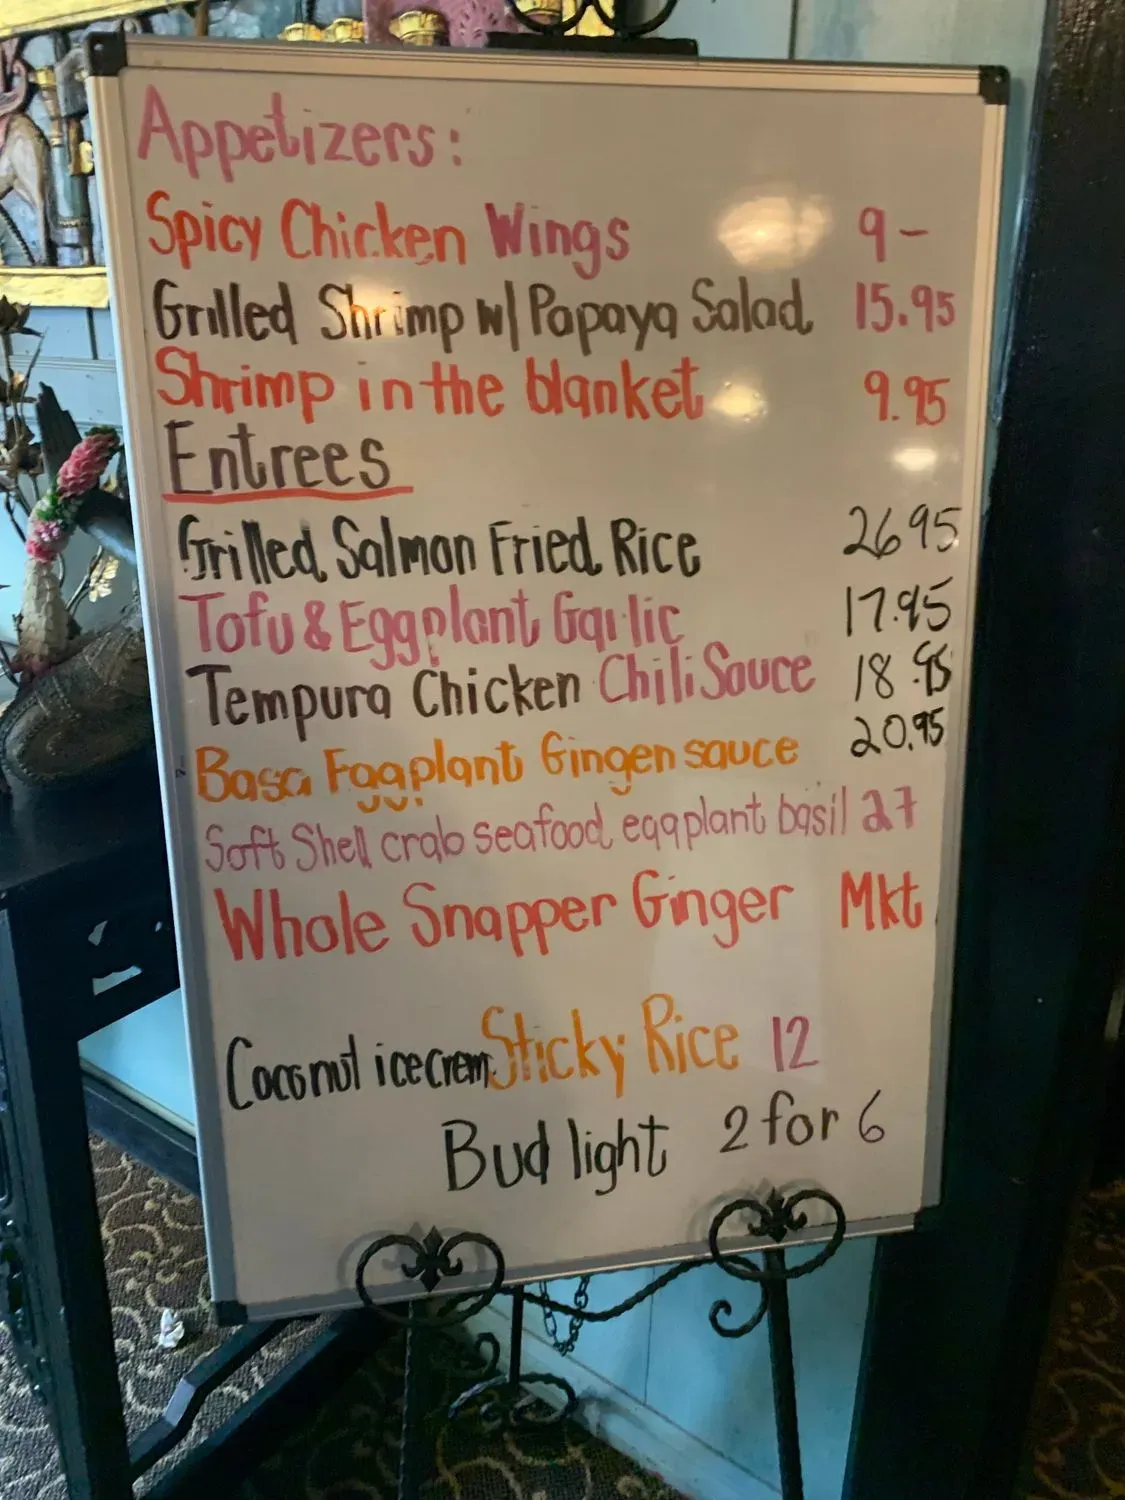 Appetizers:
Spicy Chicken Wings 9-
Grilled Shrimp w/ Papaya Salad 15.95
Shrimp in the blanket 9.95
Entrees
Grilled Salmon Fried Rice 26 95
Tofu & Eggplant Garlic 17.95
Tempura Chicken Chili Sauce 18.95
Basa Eggplant Gingen sauce 20.95
Soft Shell crab seafood eggplant basil 27
Whole Snapper Ginger Mkt
Coconut ice crem Sticky Rice 12
Bud light 2 for 6